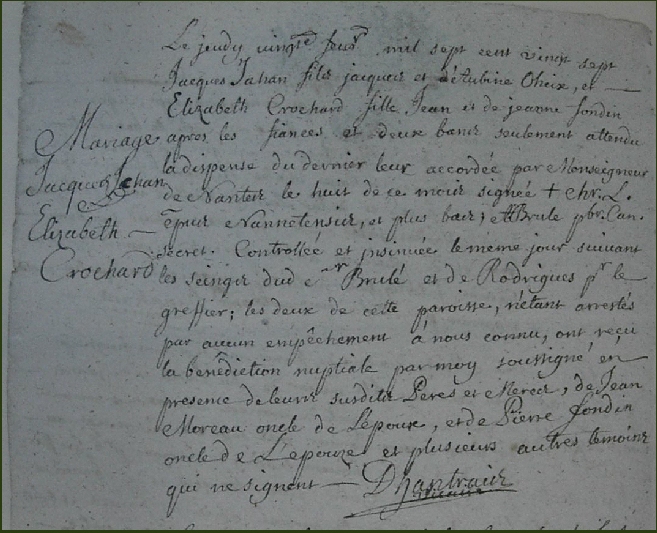 Mariage
Jacques Jahan
Elizabeth
Crochard
Le jeudy vingt feur. mil sept cent vingt sept
Jacques Jahan fils jacques et d'Aubine Oheix, et
Elizabeth Crochard fille Jean et de jeanne fondin
apres les fiances et deux bans seulement attendu
la dispense du dernier leur accordée par Monseigneur
de Nantes le huit de ce mois signée + chr. L.
epus Nannetensis, et plus bas; Brulé pbr. Can.
secret. Controllée et insinuée le meme jour suivant
les seings dud. Brulé et de Rodrigues pr le
greffier; les deux de cette paroisse, n'etant arrestés
par aucun empêchement à nous connu, ont reçu
la bénédiction nuptiale par moy soussigné en
presence de leurs susdits Peres et Meres, de Jean
Moreau oncle de L'epoux, et de Pierre fondin
oncle de L'epouze et plusieurs autres temoins
qui ne signent